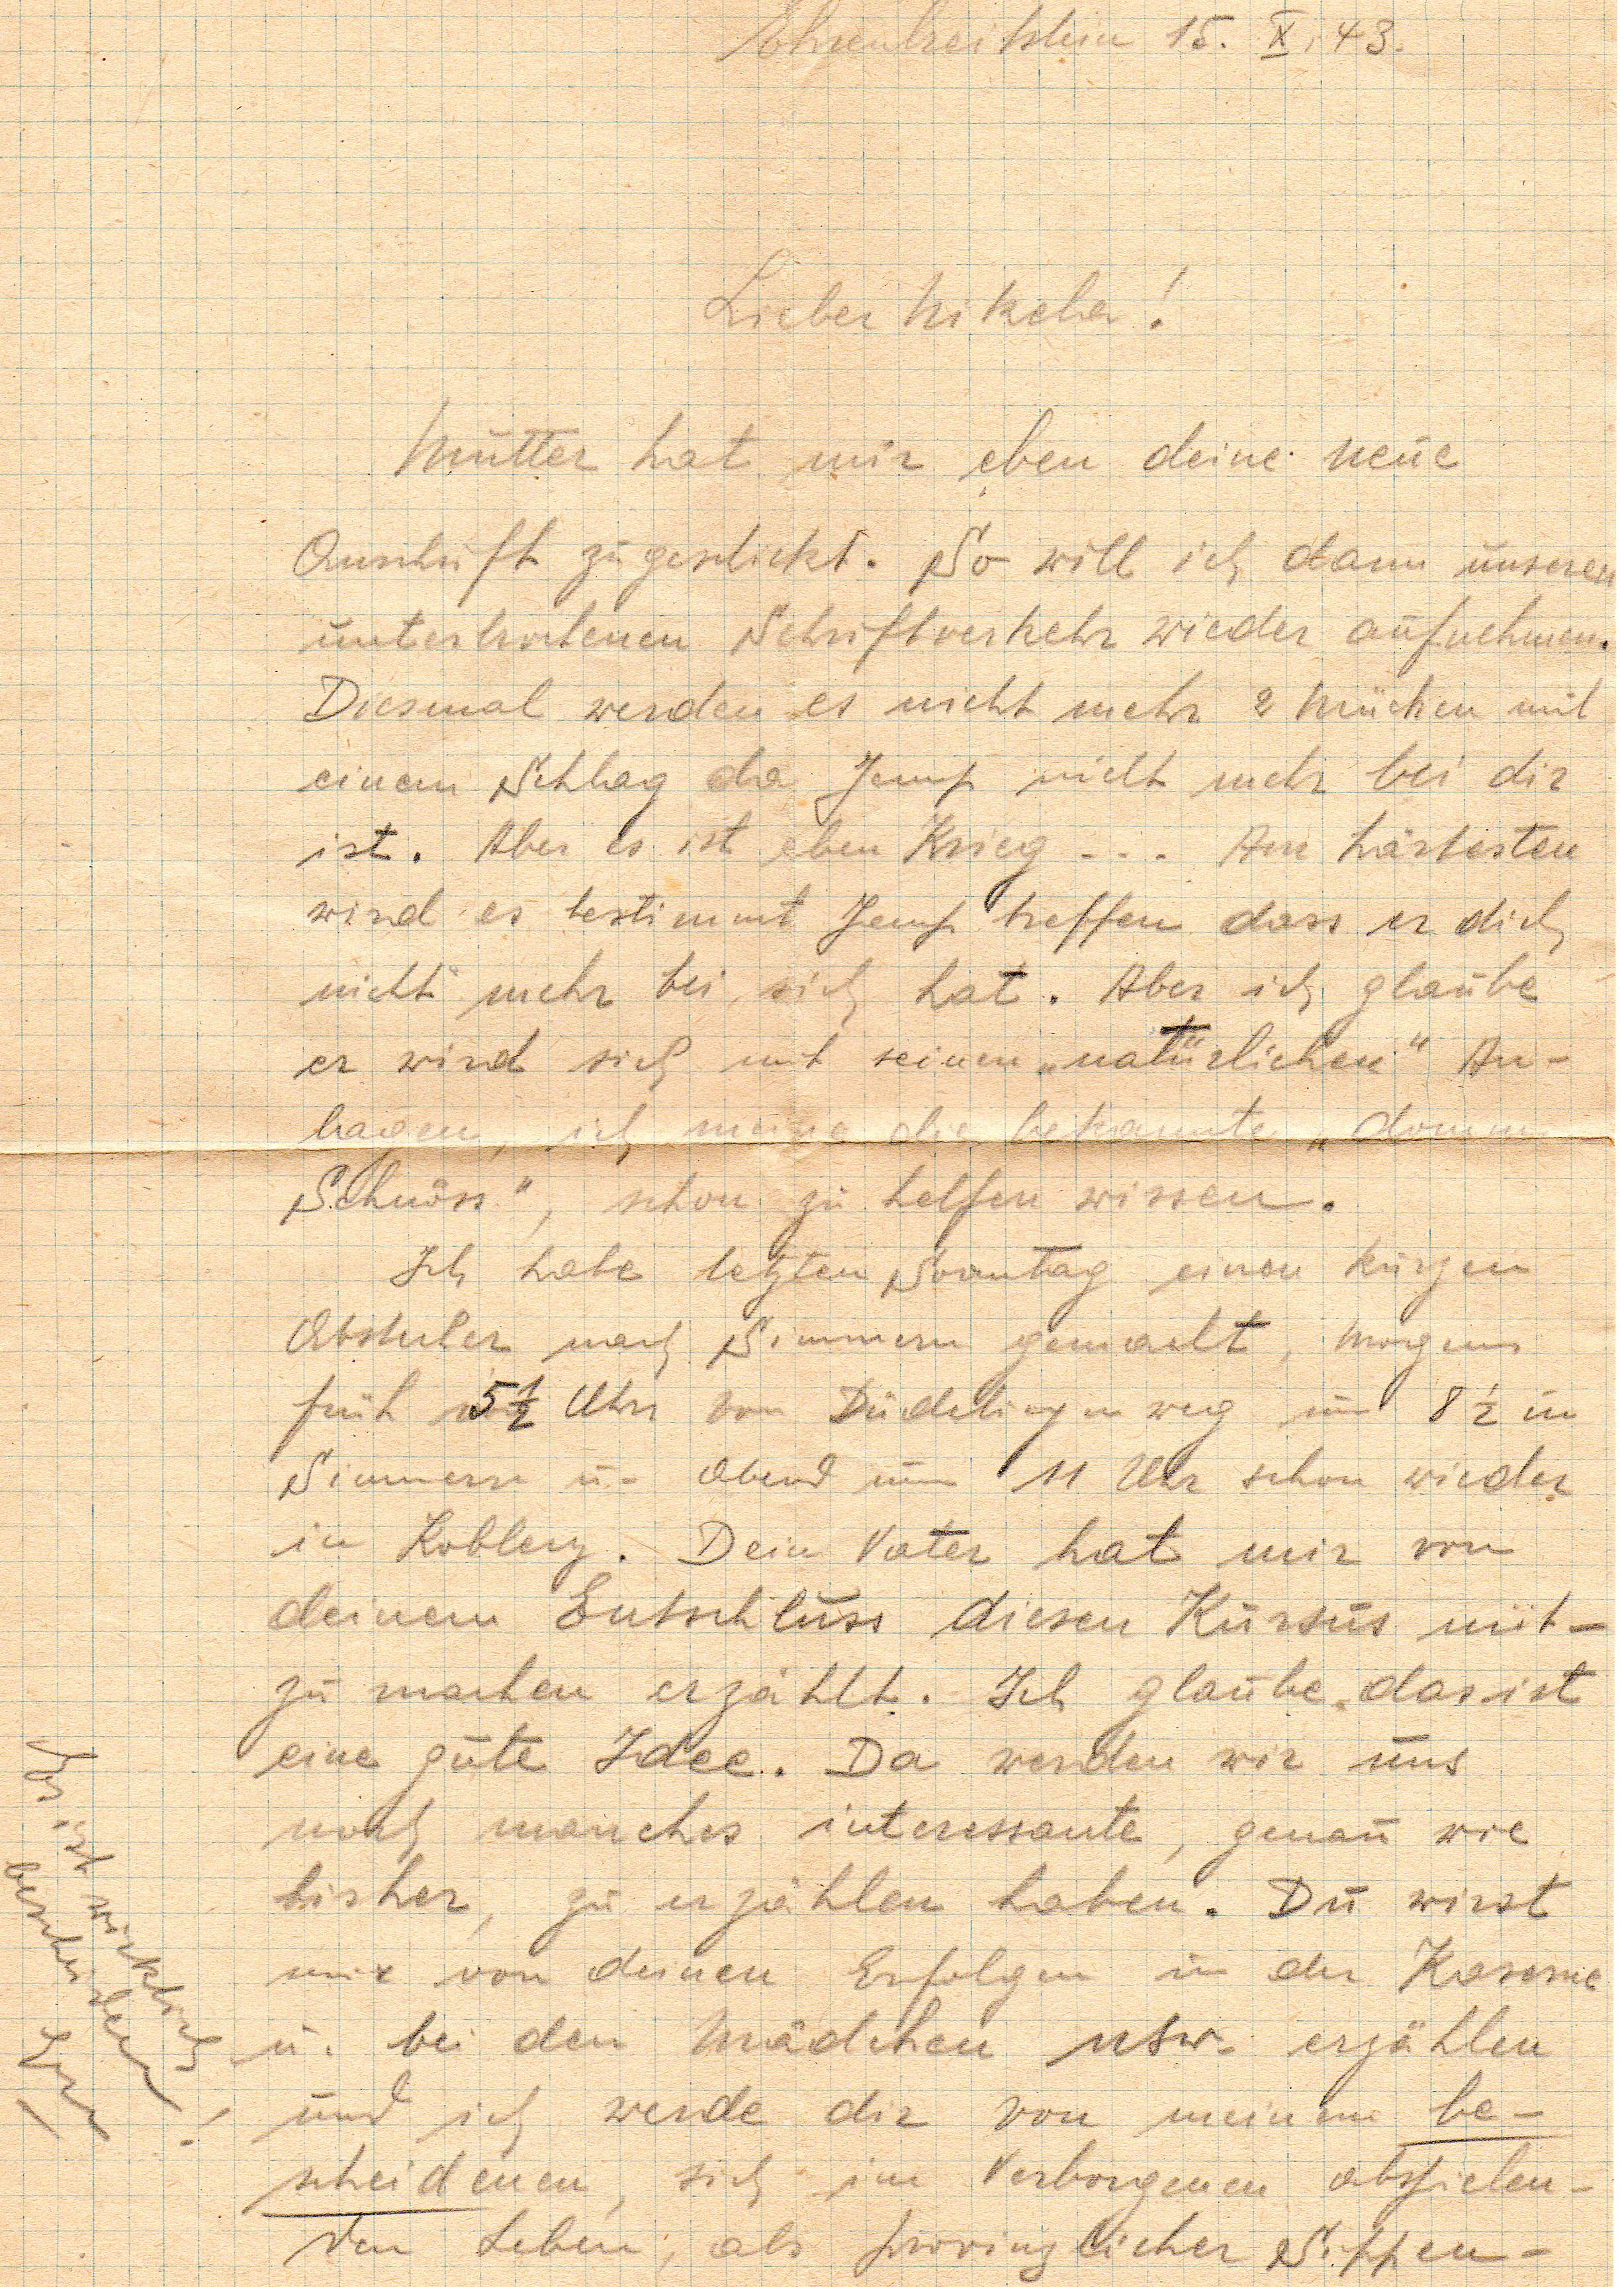 Ehrenbreitstein 15. X. 43.
Lieber Nikela!
Mutter hat mir eben deine neue
Anschrift zugeschickt. So will ich dann unseren
unterbrochenen Schriftverkehr wieder aufnehmen.
Diesmal werden es nicht mehr 2 Mücken mit
einem Schlag da Jemp nicht mehr bei dir
ist. Aber es ist eben Krieg - - . Am härtesten
wird es bestimmt Jemp treffen dass er dich
nicht mehr bei sich hat. Aber ich glaube
er wird sich mit seinen „natürlichen" An-
lagen, ich meine die bekannte „domm
Schnöss", schon zu helfen wissen.
Ich habe letzten Sonntag einen kurzen
Abstecher nach Simmern gemacht, morgens
früh 5½ Uhr von Düdelingen weg um 8½ in
Simmern u. Abend um 11 Uhr schon wieder
in Koblenz. Dein Vater hat mir von
deinem Entschluss diesen Kursus mit-
zu machen erzählt. Ich glaube das ist
eine gute Idee. Da werden wir uns
noch manches interessante, genau wie
bisher, zu erzählen haben. Du wirst
mir von deinen Erfolgen in der Kaserne
u. bei den Mädchen usw. erzählen
und ich werde dir von meinem be-
scheidenen, sich im Verborgenen abspielen-
den Leben, als provinzlicher Sippen-
Das ist wirklich
bescheiden!